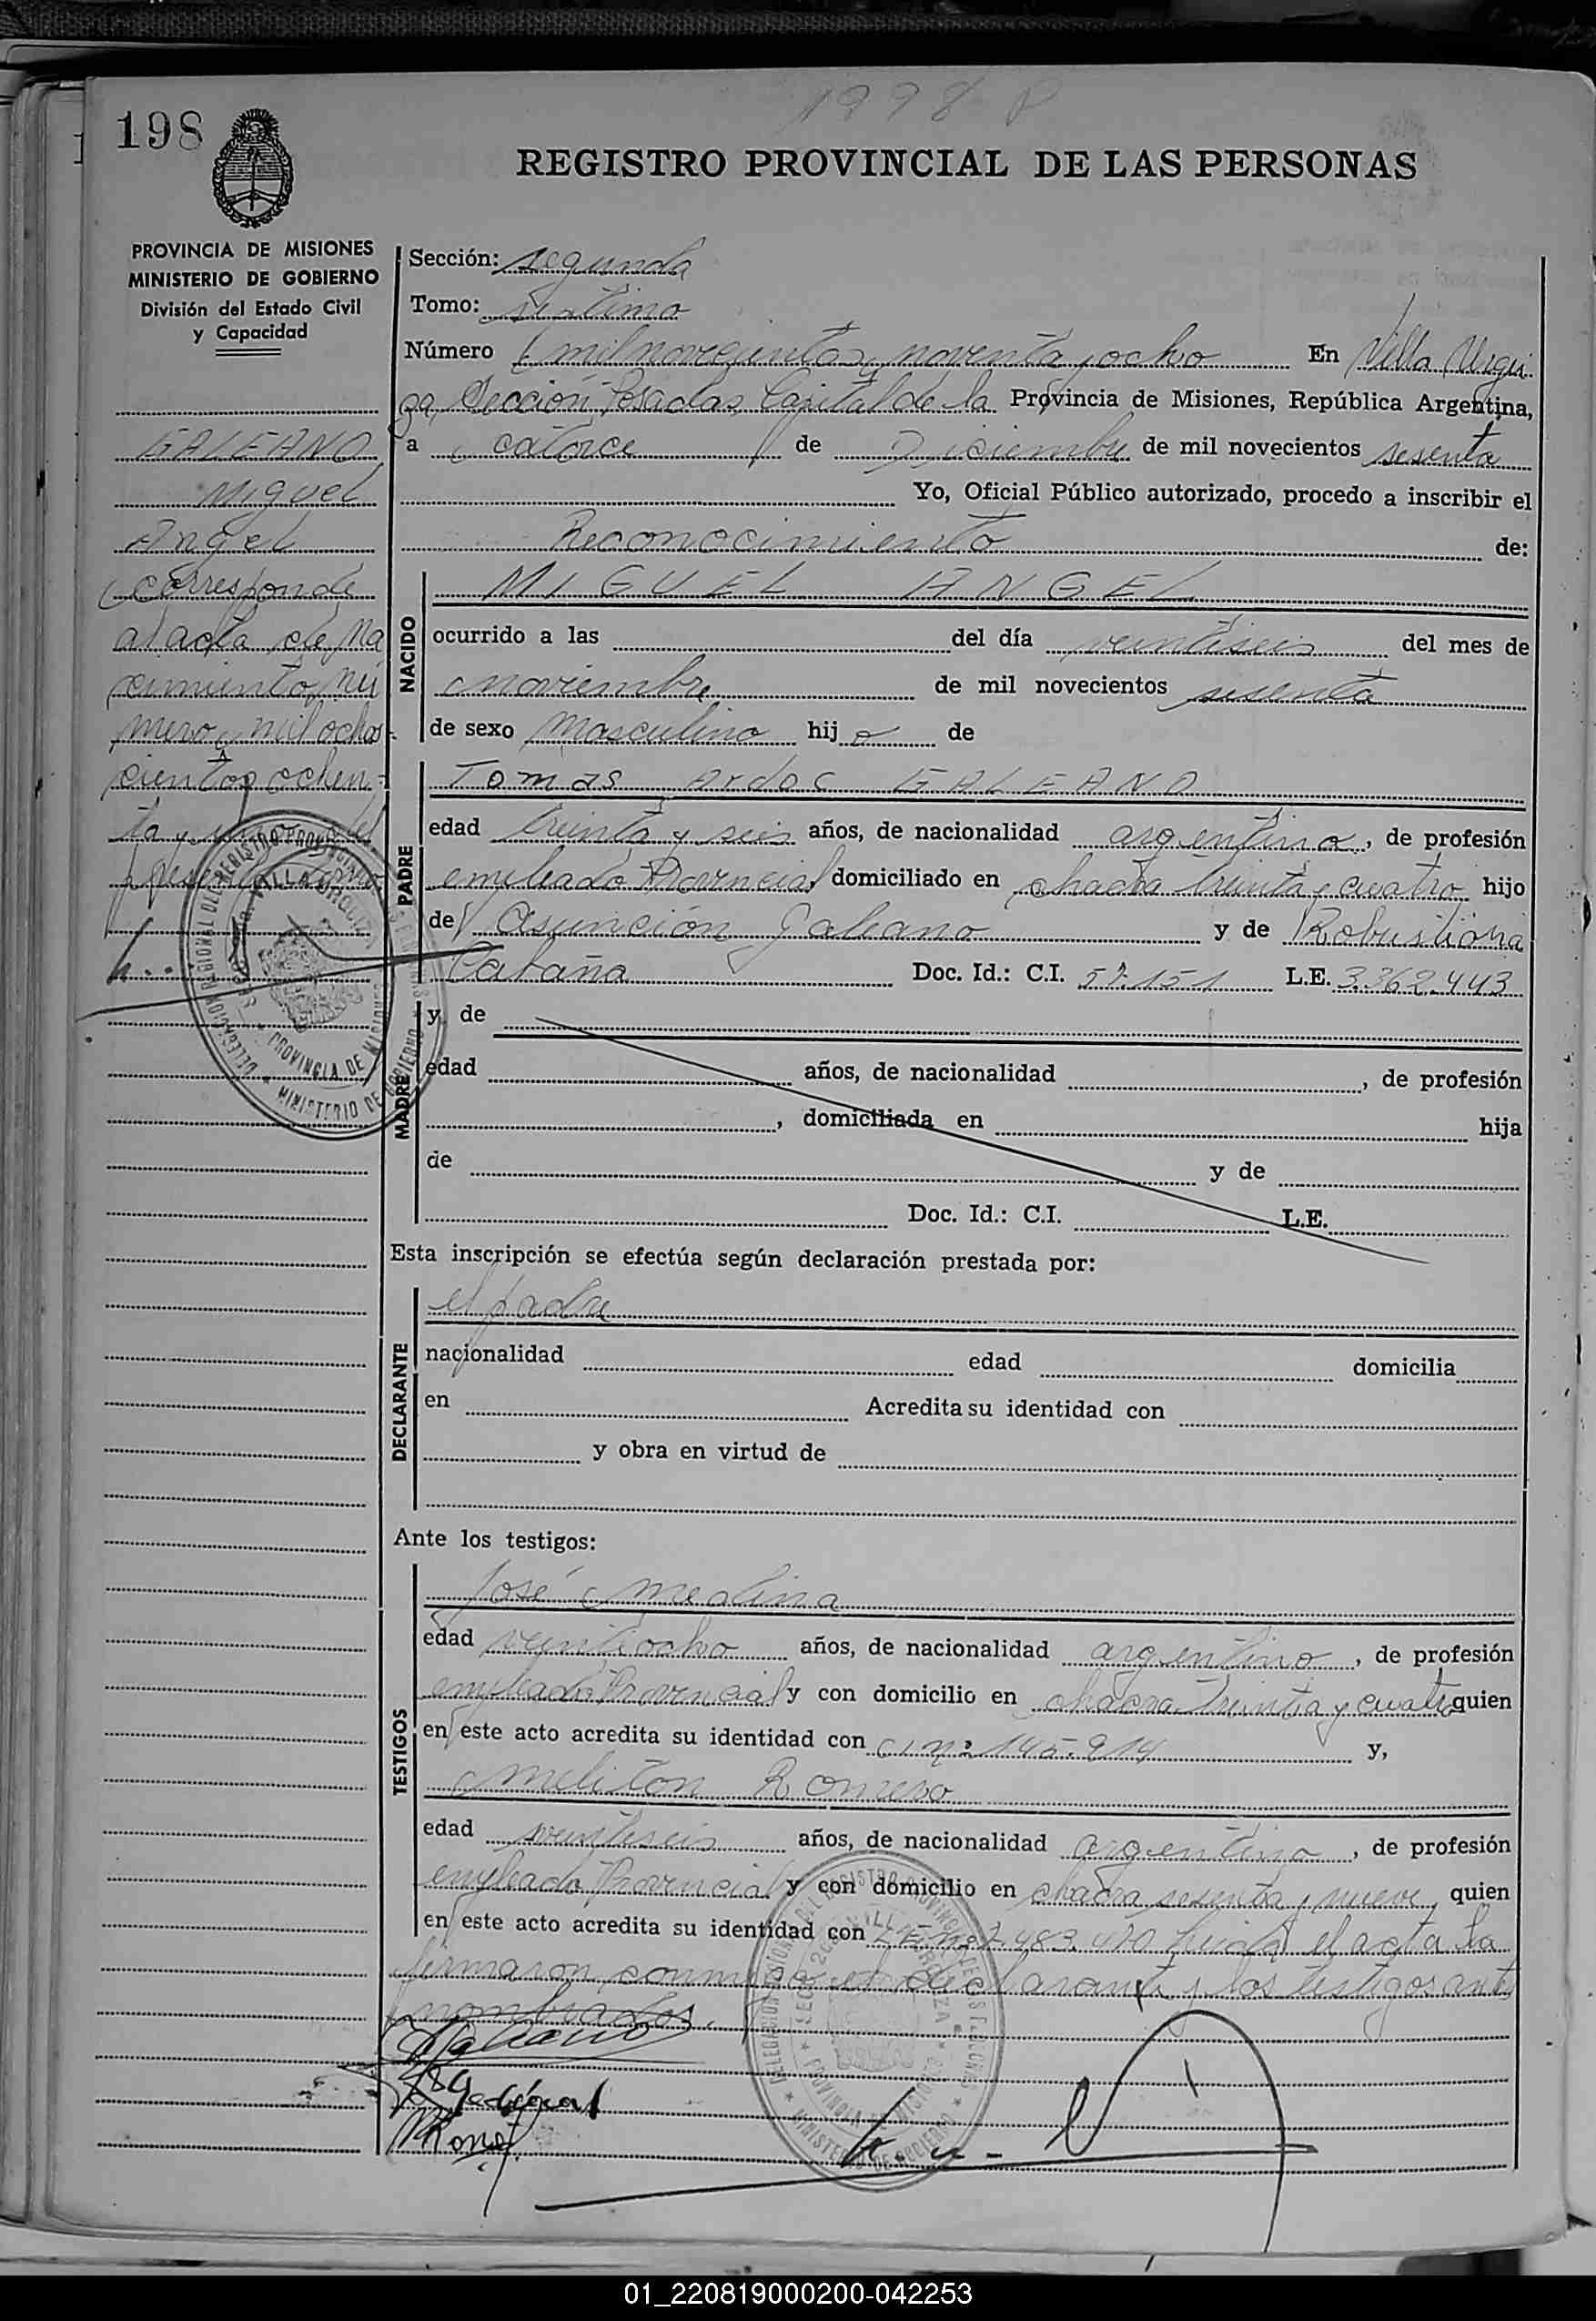 1998 P
198
REGISTRO PROVINCIAL DE LAS PERSONAS
PROVINCIA DE MISIONES
MINISTERIO DE GOBIERNO
División del Estado Civil
y Capacidad
GALEANO
Miguel
Angel
corresponde
al acta de Na
cimiento nú
mero mil ocho
cientos ochen-
ta y uno del
presente
Sección: segunda
Tomo: septimo
Número mil novecientos noventa y ocho En Villa Urqui
za, Sección Posadas Capital de la Provincia de Misiones, República Argentina,
a catorce de Diciembre de mil novecientos sesenta
Yo, Oficial Público autorizado, procedo a inscribir el
Reconocimiento de:
NACIDO
MIGUEL ANGEL
ocurrido a las del día veintiseis del mes de
noviembre de mil novecientos sesenta
de sexo masculino hijo de
PADRE
Tomas Ardoc GALEANO
edad treinta y seis años, de nacionalidad argentina, de profesión
empleado Provincial domiciliado en chacra treinta y cuatro hijo
de Asunción Galeano y de Robustiana
Cabaña Doc. Id.: C.I. 57.151 L.E. 3.362.443
MADRE
y de
edad años, de nacionalidad , de profesión
, domiciliada en hija
de y de
Doc. Id.: C.I. L.E.
Esta inscripción se efectúa según declaración prestada por:
DECLARANTE
el padre
nacionalidad edad domicilia
en Acredita su identidad con
y obra en virtud de
Ante los testigos:
TESTIGOS
José Medina
edad veintiocho años, de nacionalidad argentino, de profesión
empleado Provincial y con domicilio en chacra treinta y cuatro quien
en este acto acredita su identidad con C.I. nº 145.914 y,
Meliton Romero
edad veintiseis años, de nacionalidad argentino, de profesión
empleado Provincial y con domicilio en chacra sesenta y nueve, quien
en este acto acredita su identidad con L.E. nº 7.483.470 Leida el acta la
firmaron conmigo el declarante y los testigos ante
nombrados.
Galeano
DELEGACION REGIONAL DEL REGISTRO PROVINCIAL DE LAS PERSONAS
SECC. 2da. VILLA URQUIZA
PROVINCIA DE MISIONES
MINISTERIO DE GOBIERNO
01_220819000200-042253